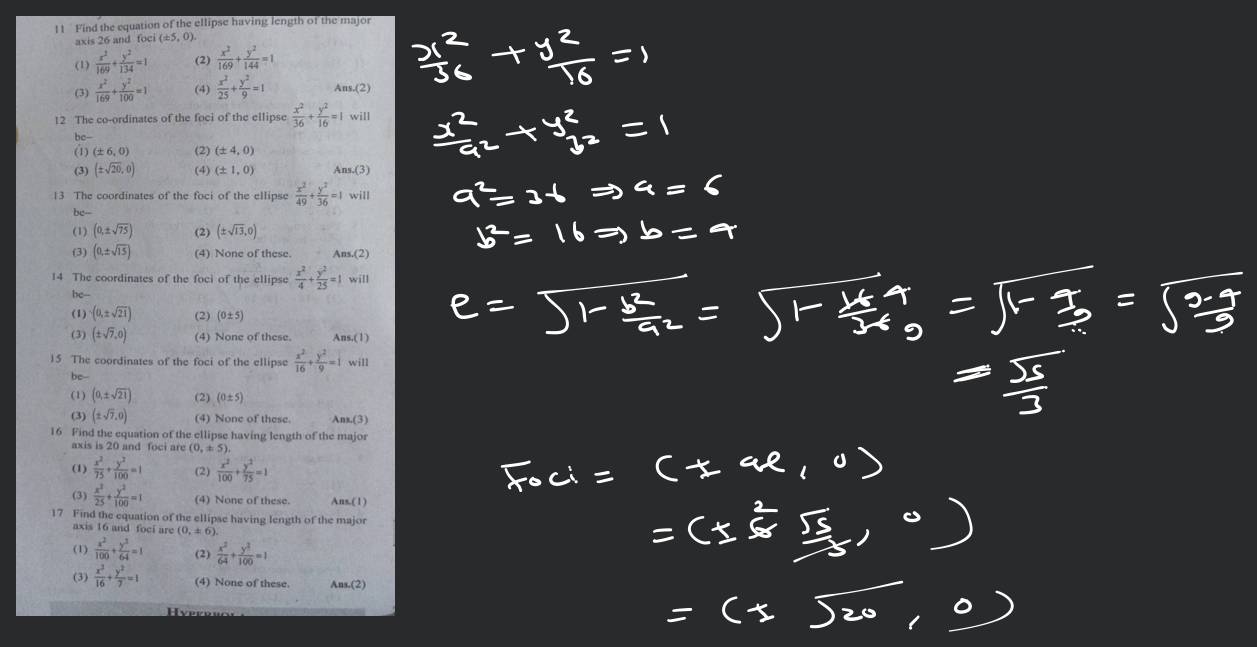 11 Find the equation of the ellipse having length of the major
axis 26 and foci (±5, 0).
(1) x²/169 + y²/134 = 1 (2) x²/169 + y²/144 = 1
(3) x²/169 + y²/100 = 1 (4) x²/25 + y²/9 = 1 Ans.(2)
12 The co-ordinates of the foci of the ellipse x²/36 + y²/16 = 1 will
be–
(1) (± 6, 0) (2) (± 4, 0)
(3) (±√20, 0) (4) (± 1, 0) Ans.(3)
13 The coordinates of the foci of the ellipse x²/49 + y²/36 = 1 will
be–
(1) (0,±√75) (2) (±√13,0)
(3) (0,±√15) (4) None of these. Ans.(2)
14 The coordinates of the foci of the ellipse x²/4 + y²/25 = 1 will
be–
(1) (0,±√21) (2) (0±5)
(3) (±√7,0) (4) None of these. Ans.(1)
15 The coordinates of the foci of the ellipse x²/16 + y²/9 = 1 will
be–
(1) (0,±√21) (2) (0±5)
(3) (±√7,0) (4) None of these. Ans.(3)
16 Find the equation of the ellipse having length of the major
axis is 20 and foci are (0, ± 5).
(1) x²/75 + y²/100 = 1 (2) x²/100 + y²/75 = 1
(3) x²/25 + y²/100 = 1 (4) None of these. Ans.(1)
17 Find the equation of the ellipse having length of the major
axis 16 and foci are (0, ± 6).
(1) x²/100 + y²/64 = 1 (2) x²/64 + y²/100 = 1
(3) x²/16 + y²/7 = 1 (4) None of these. Ans.(2)
x²/36 + y²/16 = 1
x²/a² + y²/b² = 1
a² = 36 ⇒ a = 6
b² = 16 ⇒ b = 4
e = √(1 - b²/a²) = √(1 - 16/36 4/9) = √(1 - 4/9) = √(9-4/9)
= √5/3
Foci = (± ae, 0)
= (± 6 2 √5/3, 0)
= (± √20, 0)